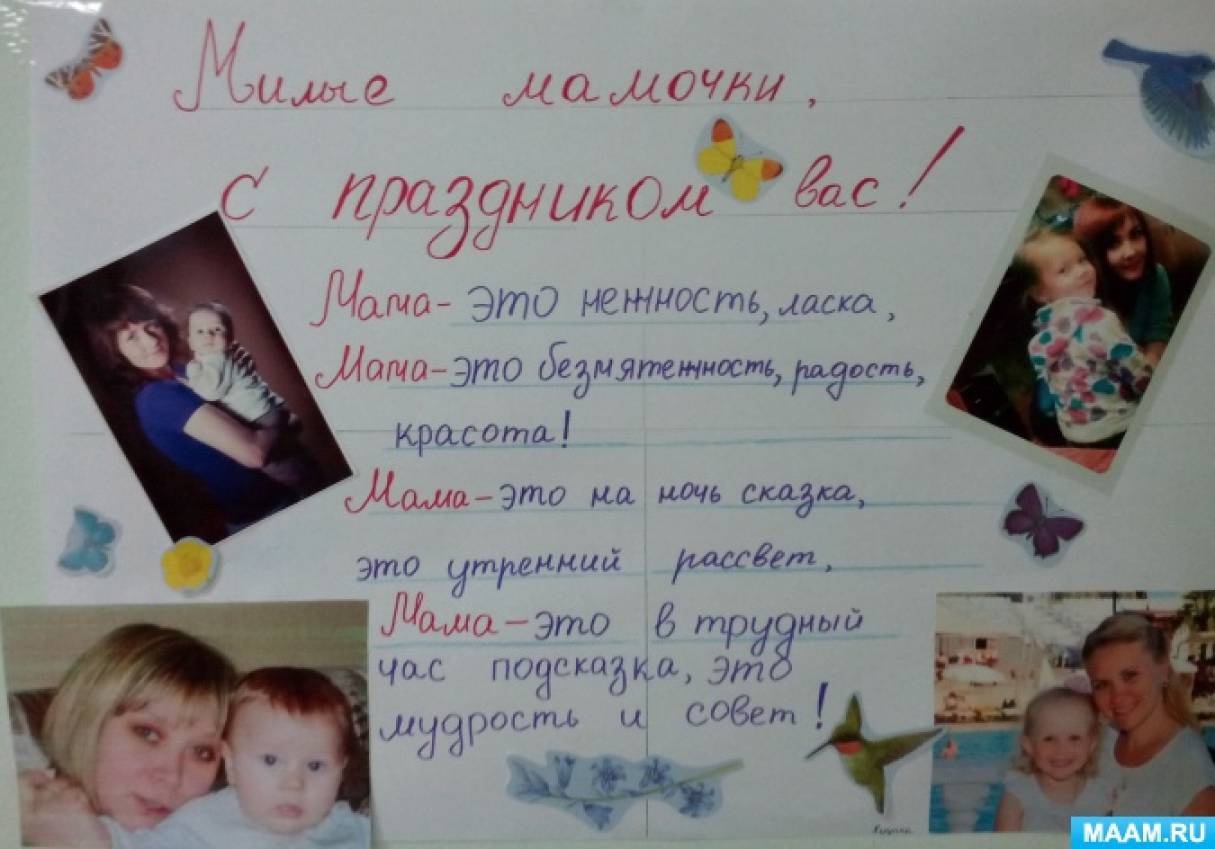 Милые мамочки,
с праздником вас!
Мама- это нежность, ласка,
Мама-это безмятежность, радость,
красота!
Мама-это на ночь сказка,
это утренний рассвет,
Мама-это в трудный
час подсказка, это
мудрость и совет!
MAAM.RU